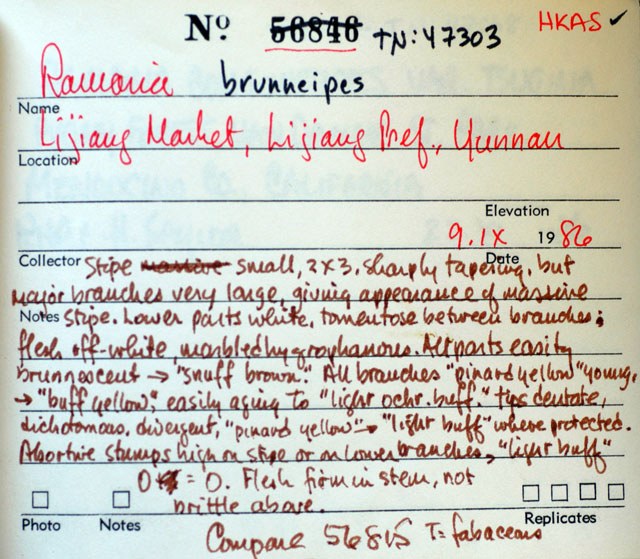 Nº 56846 TN: 47303 HKAS ✓
Ramaria brunneipes
Name
Lijiang Market, Lijiang Pref., Yunnan
Location
Elevation
9.IX 1986
Collector Date
Stipe massive small, 2x3. sharply tapering, but
major branches very large, giving appearance of massive
Notes stipe. Lower parts white, tomentose between branches;
flesh off-white, marbled hygrophanous. All parts easily
brunnescent → "snuff brown." All branches "pinard yellow" young,
→ "buff yellow", easily aging to "light ochr. buff." tips dentate,
dichotomous, divergent, "pinard yellow" → "light buff" where protected.
Abortive stumps high on stipe or on lower branches, "light buff"
= 0. Flesh firm in stem, not
brittle above.
Photo Notes Replicates
Compare 56815 T= fabaceous